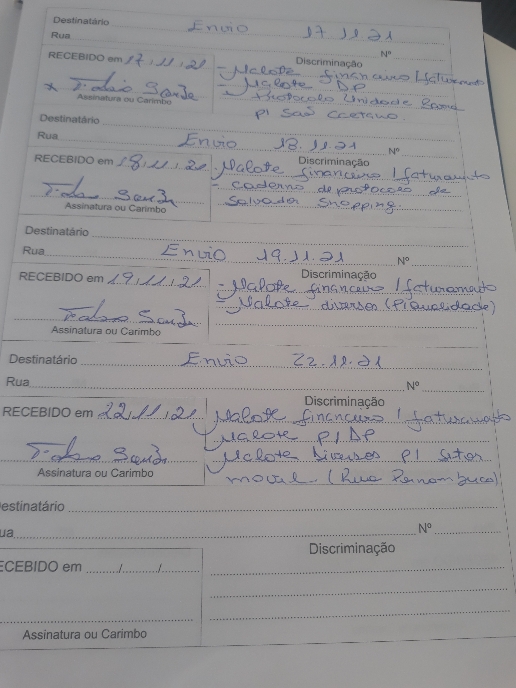 Destinatário Envio 17.11.21
Rua Nº
RECEBIDO em 17, 11, 21 Discriminação
- Malote financeiro / faturamento
- Malote DP
- Protocolo Unidade
p/ São Caetano.
Assinatura ou Carimbo
Destinatário
Rua Envio 18.11.21 Nº
RECEBIDO em 18, 11, 21 Discriminação
- Malote financeiro / faturamento
- caderno de protocolo de
Salvador Shopping.
Assinatura ou Carimbo
Destinatário
Rua Envio 19.11.21 Nº
RECEBIDO em 19, 11, 21 Discriminação
- Malote financeiro / faturamento
- Malote diversos (P/ qualidade)
Assinatura ou Carimbo
Destinatário Envio 22.11.21
Rua Nº
RECEBIDO em 22, 11, 21 Discriminação
- Malote financeiro / faturamento
- Malote P/ DP
- Malote Diversos P/ Setor
(Rua Pernambuco)
Assinatura ou Carimbo
Destinatário
ua Nº
ECEBIDO em / / Discriminação
Assinatura ou Carimbo